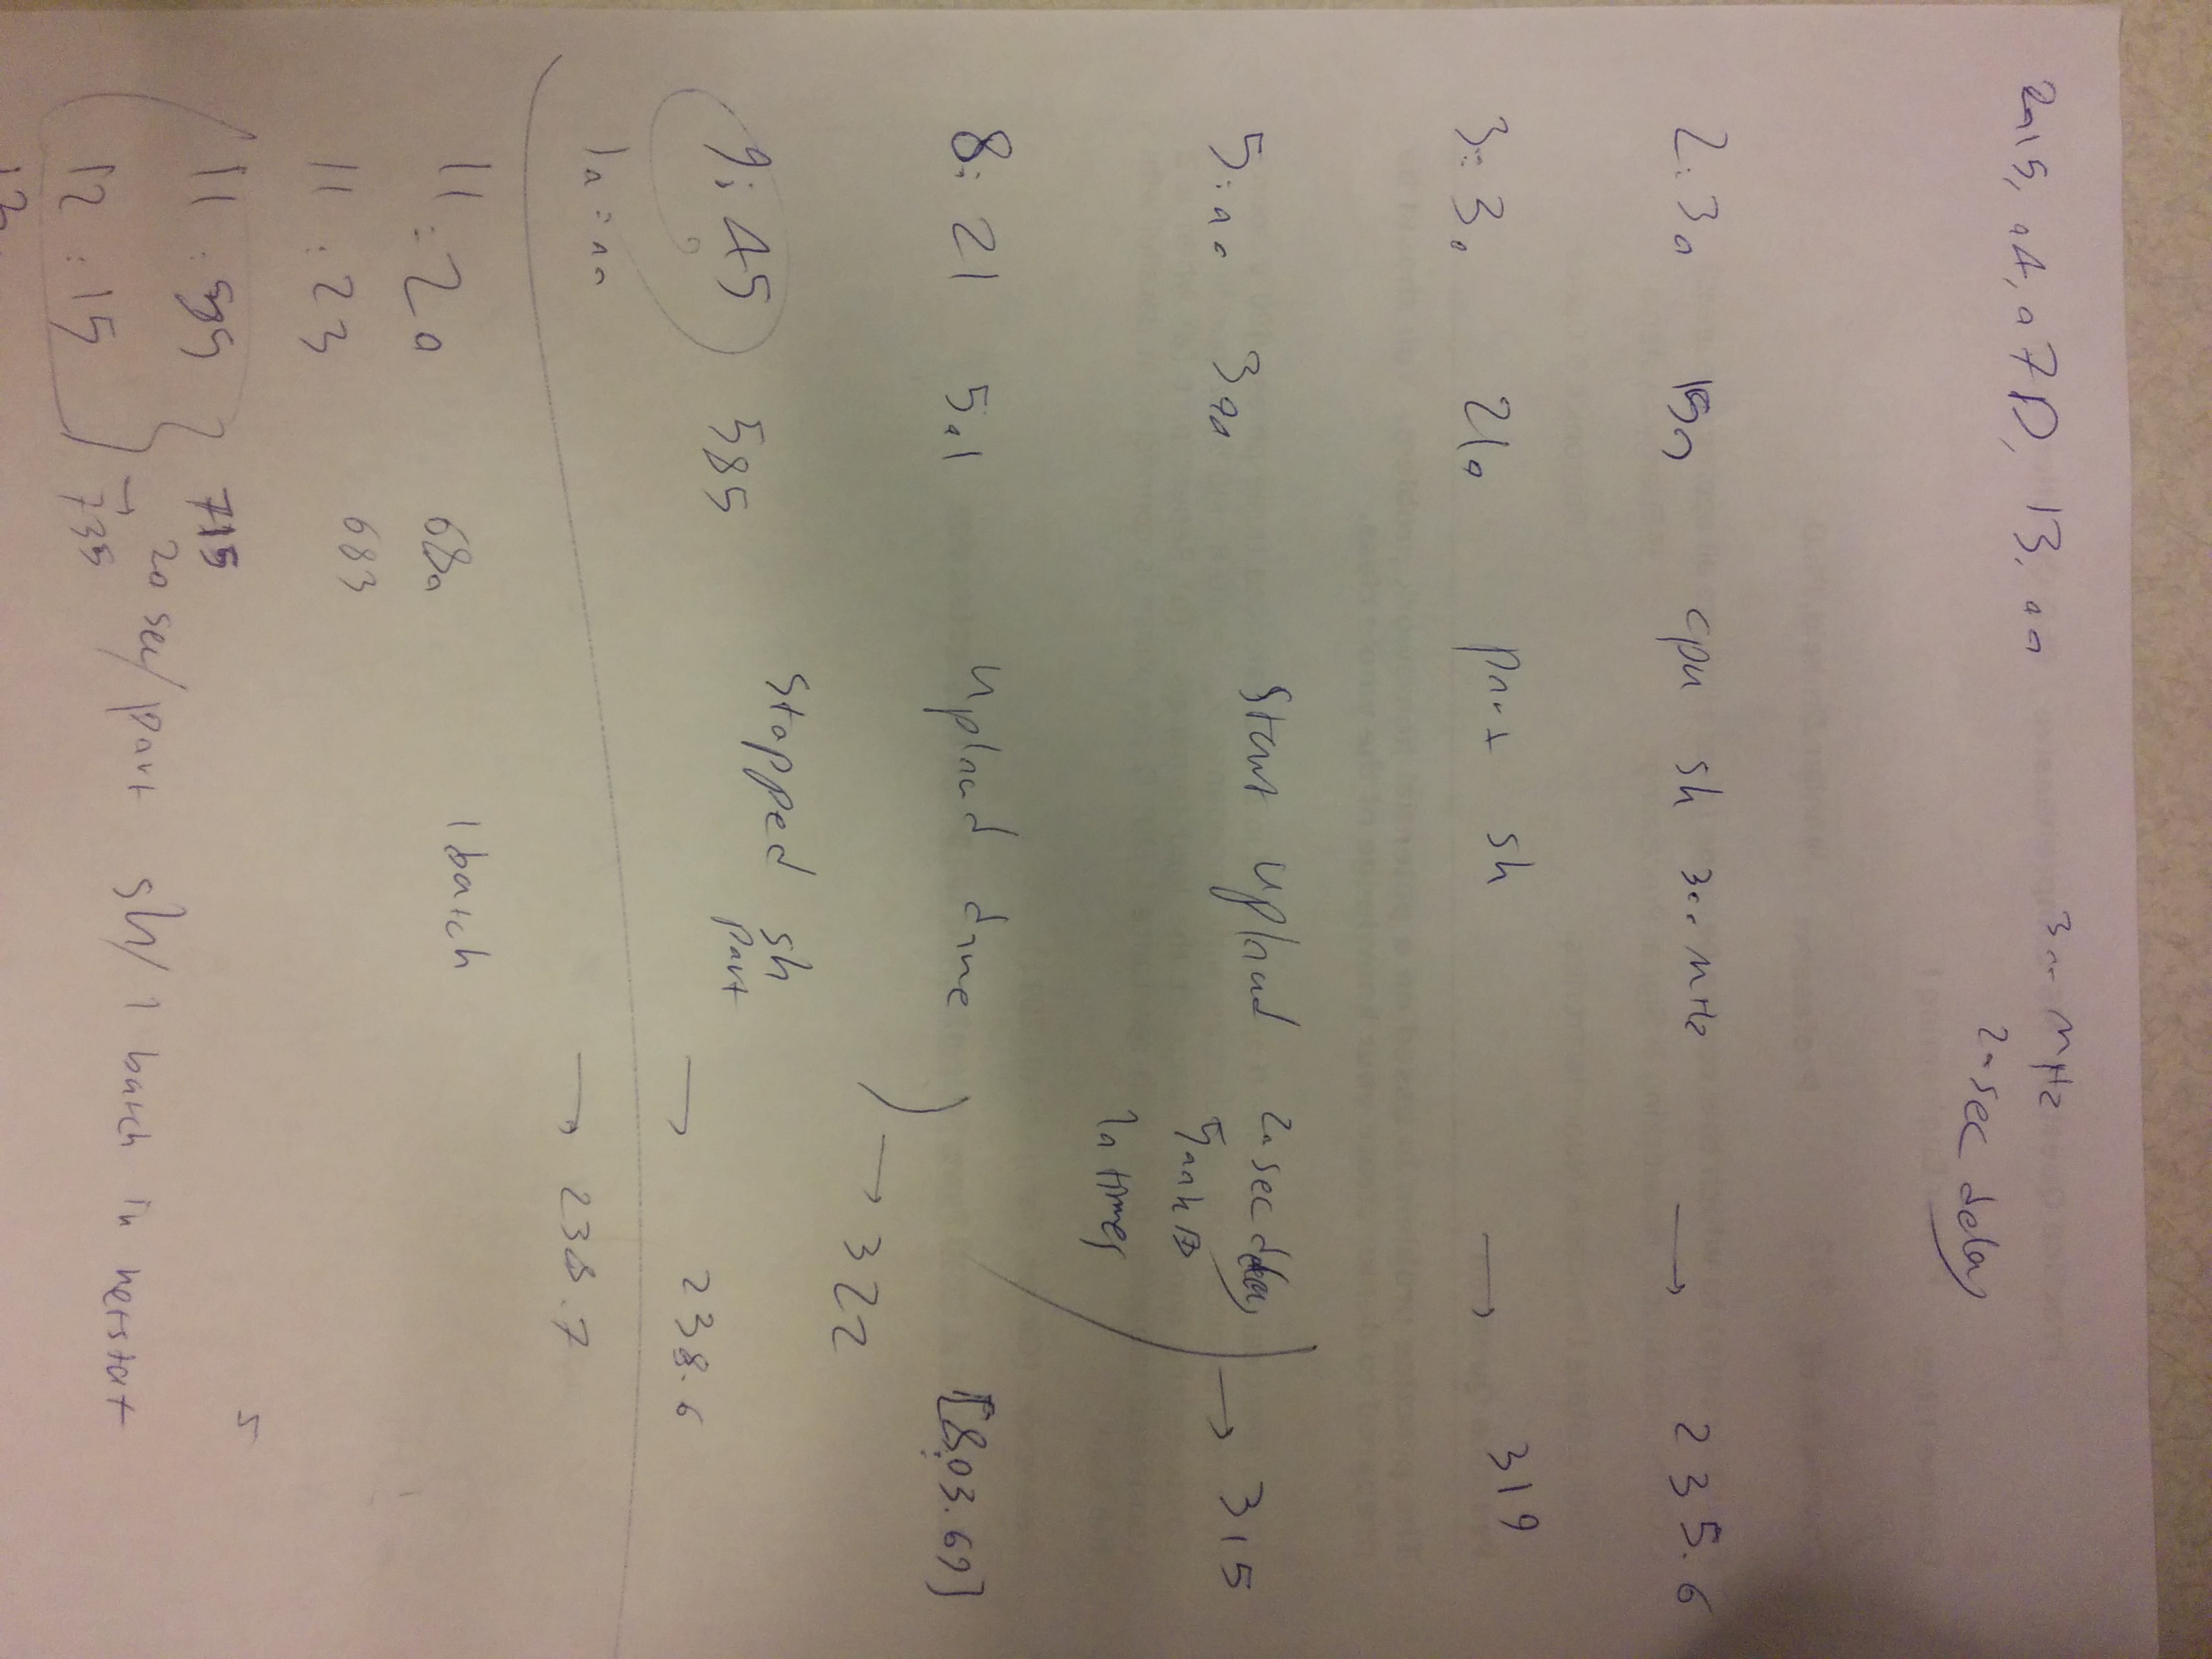 2015, 04, 07 D, 13.00 300 MHz
20 sec delay
2:30 150 cpu sh 300 MHz → 235.6
3:30 210 part sh → 319
5:00 300 start upload 20 sec delay → 315
500 kB
10 times
8:21 501 upload done [8:03.69]
→ 322
9:45 585 stopped sh part → 238.6
10:00 → 238.7
11:20 680 1 batch
11:23 683
11:55 715
20 sec/part sh/1 batch in netstat
12:15 → 735